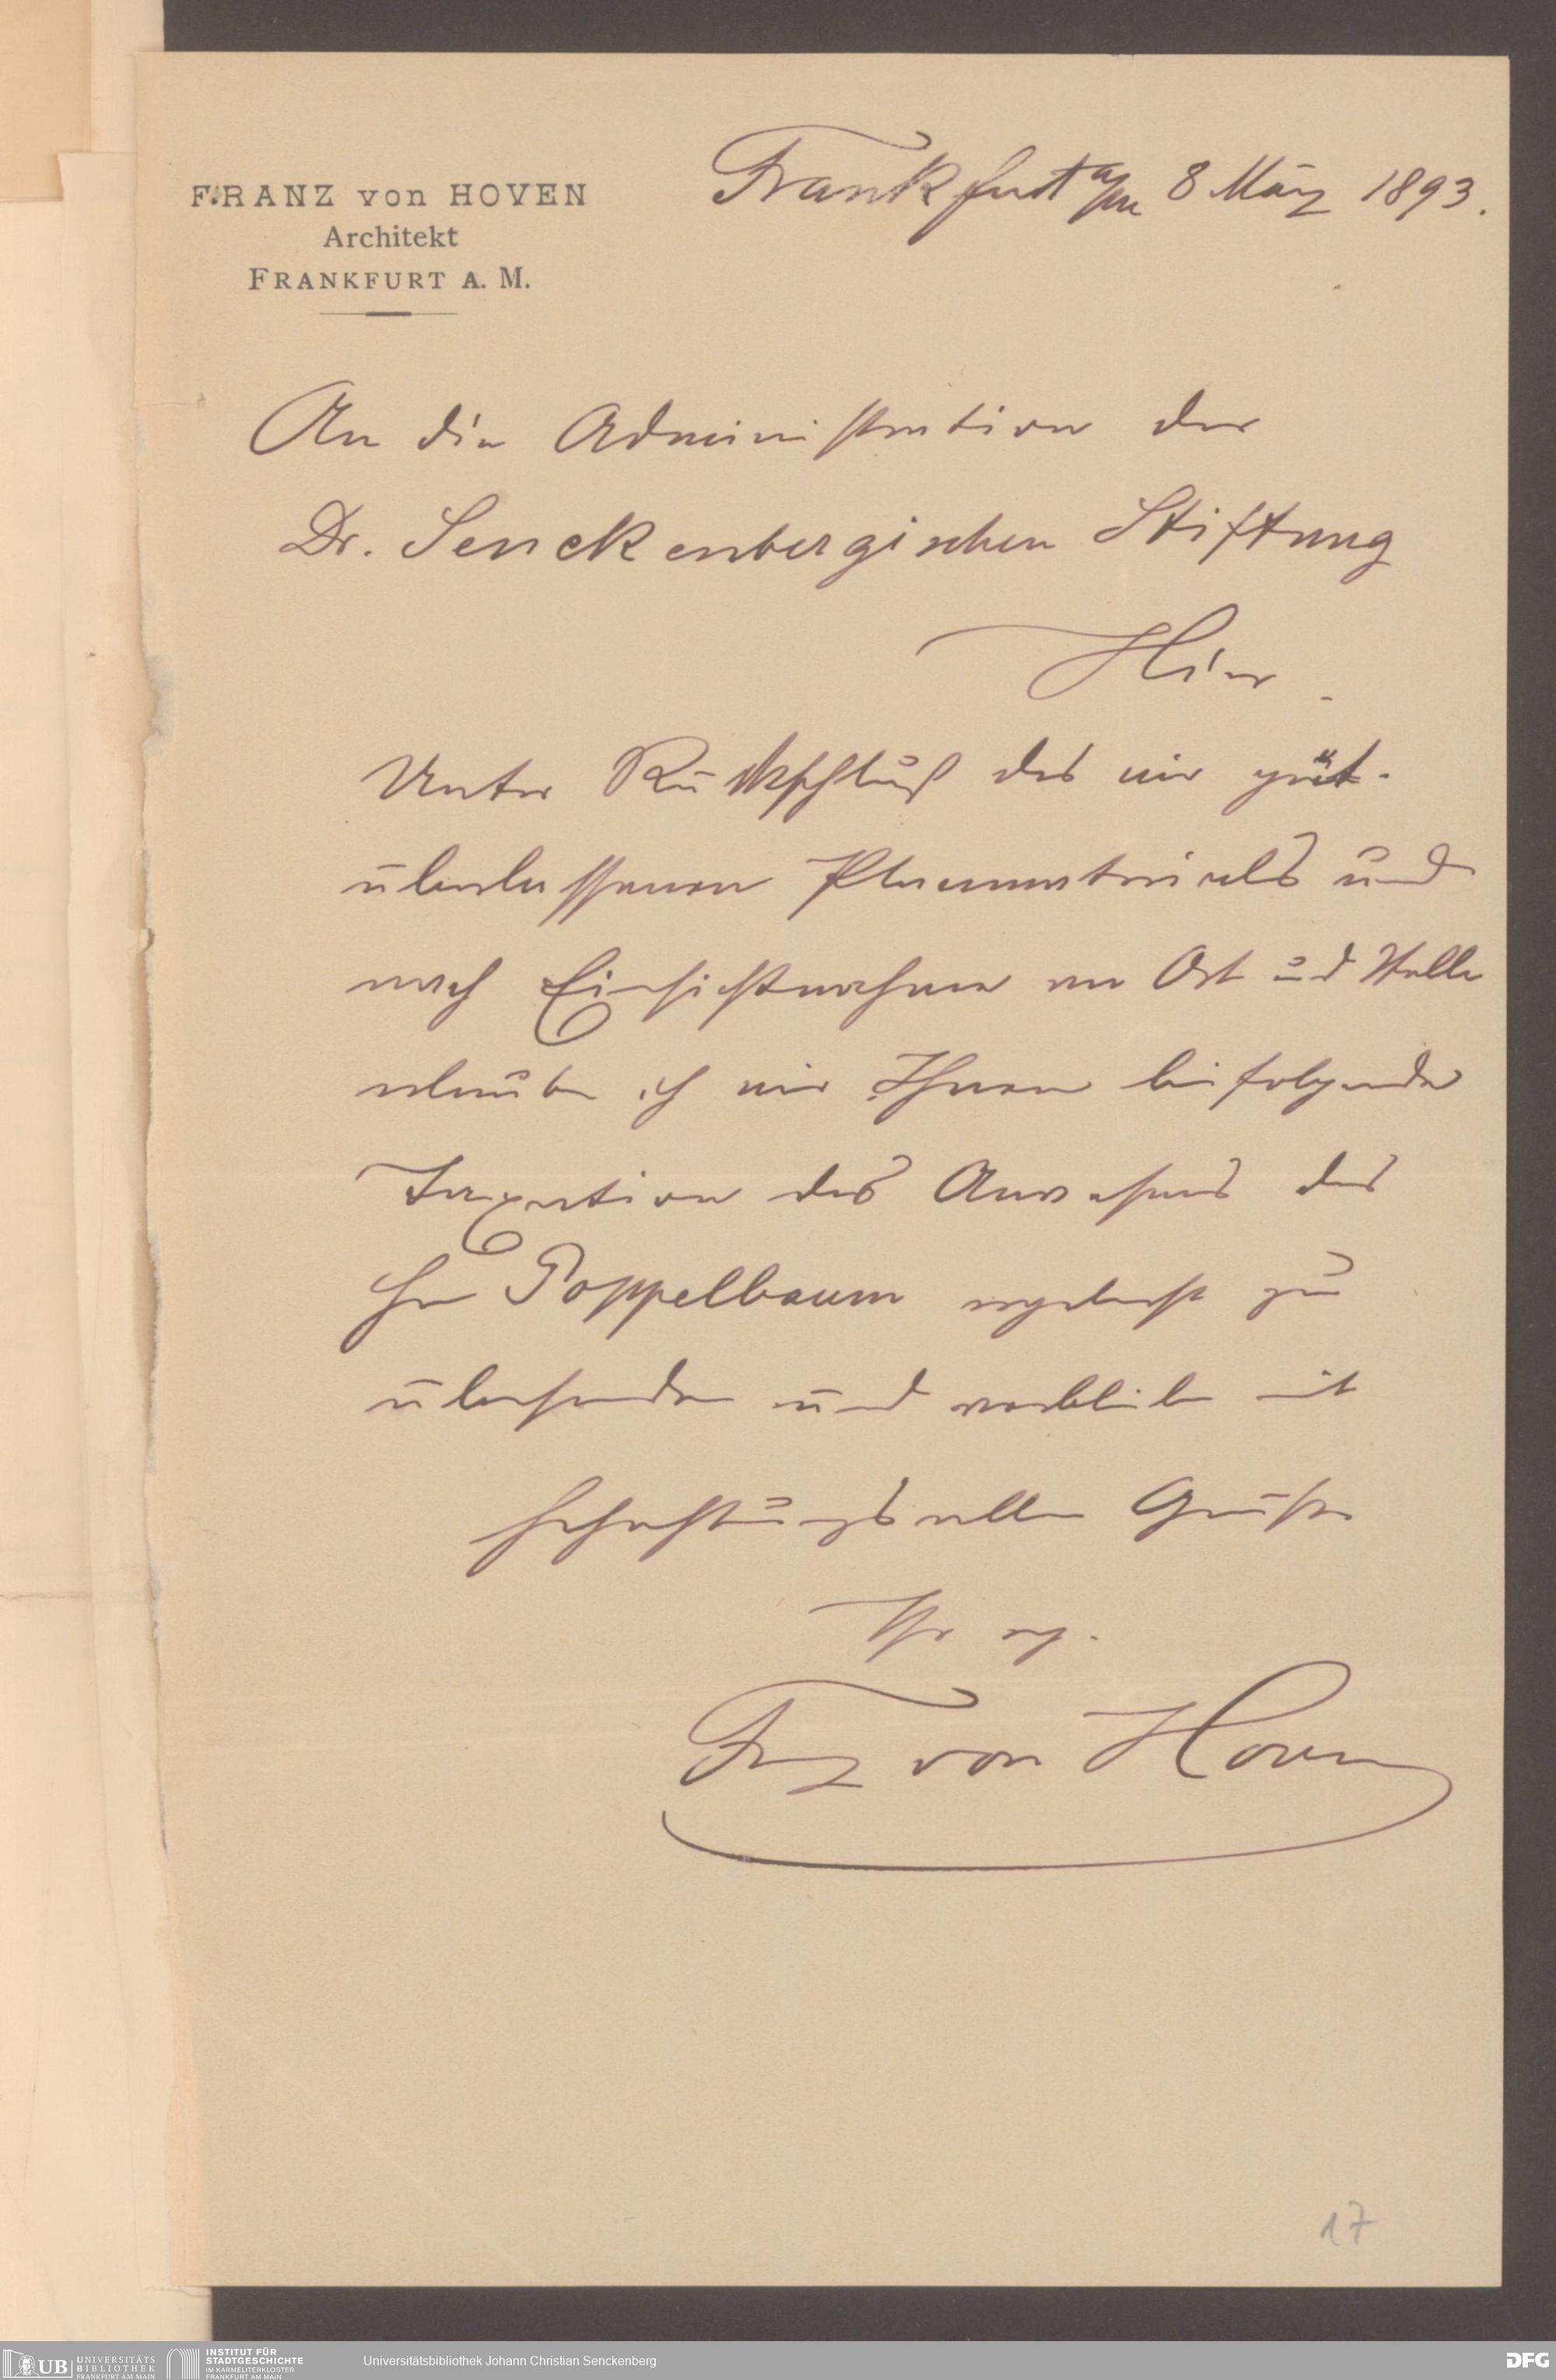 FRANZ von HOVEN
Architekt
FRANKFURT A. M.
Frankfurt a/M 8 März 1893.
An die Administration der
Dr. Senckenbergischen Stiftung
Hier.
Unter Rückschluß des mir güt.
überlassenen Planmaterials und
nach Einsichtnahme an Ort und Stelle
erlaube ich mir Ihnen beifolgende
Taxation des Anwesens des
Hrn Poppelbaum ergebenst zu
übersenden und verbleibe mit
hochachtungsvollem Gruße
Ihr erg.
Franz von Hoven
17
UB UNIVERSITÄTS
BIBLIOTHEK
FRANKFURT AM MAIN
INSTITUT FÜR
STADTGESCHICHTE
IM KARMELITERKLOSTER
FRANKFURT AM MAIN
Universitätsbibliothek Johann Christian Senckenberg
DFG